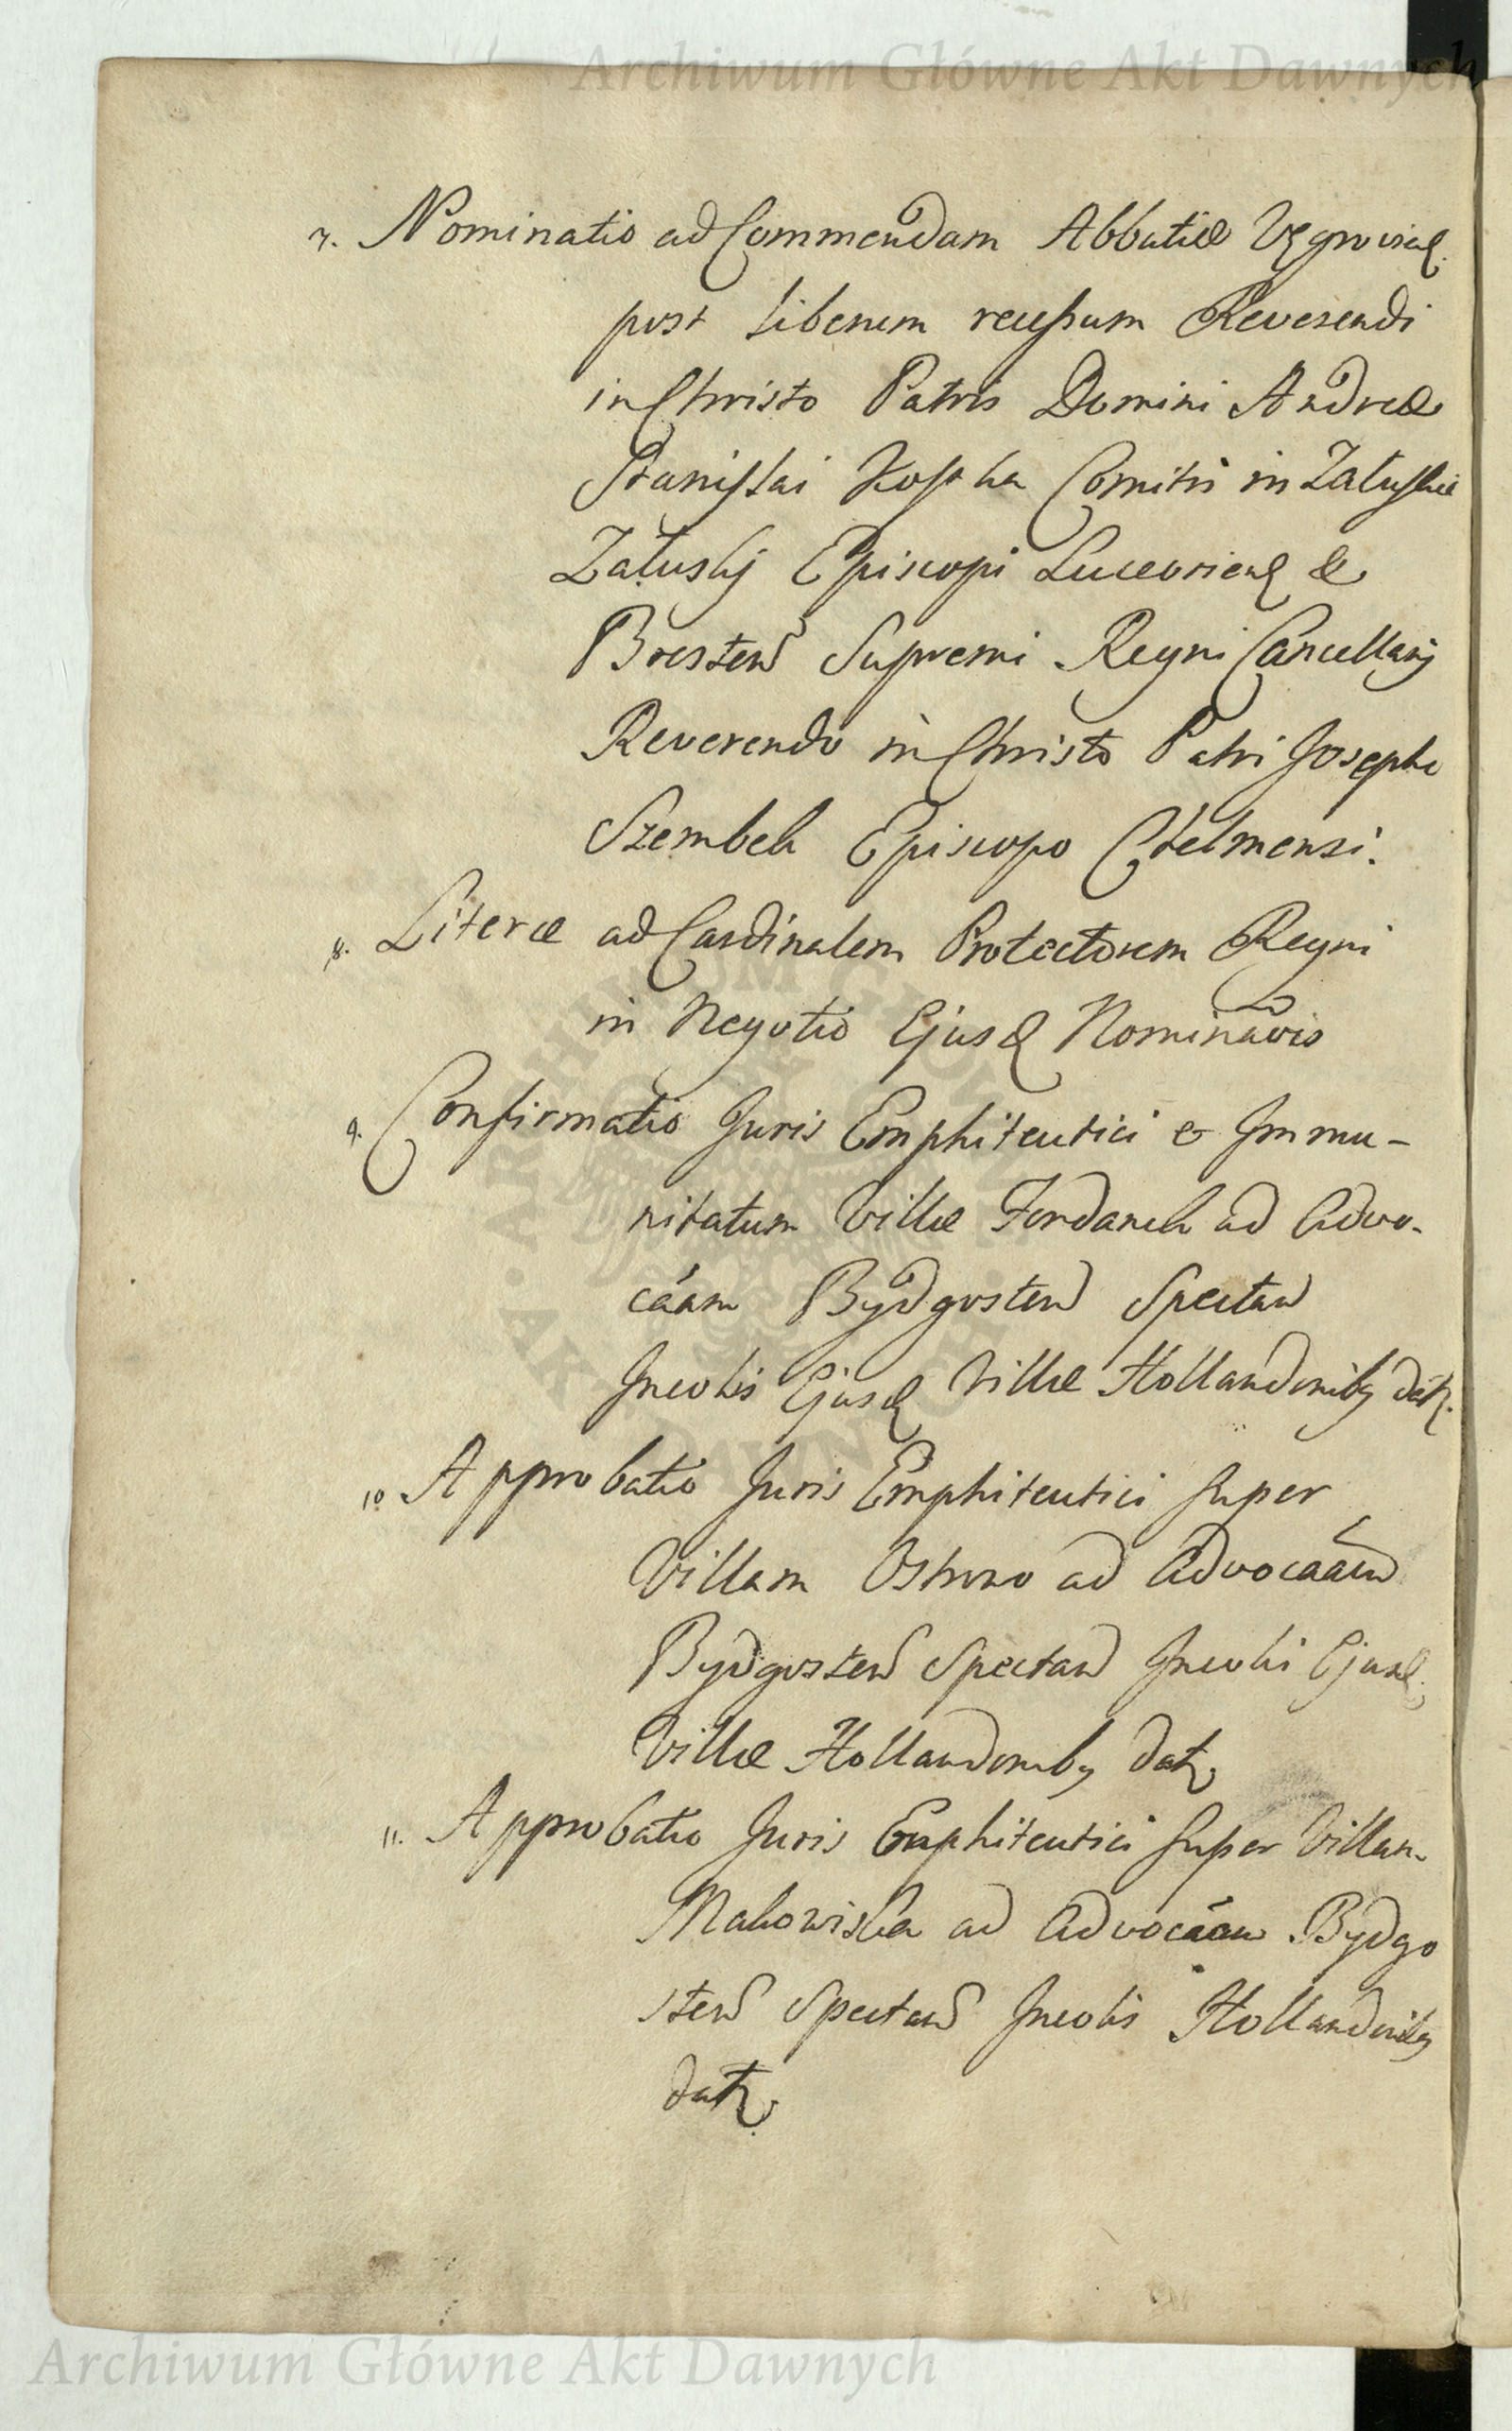 Archiwum Główne Akt Dawnych
7. Nominatio ad Commendam Abbatiæ Vęgrovien.
post liberum recessum Reverendi
in Christo Patris Domini Andreæ
Stanislai Kostka Comitis in Załuskie
Załuskj Episcopi Luceorien &
Bresten Supremi Regni Cancellarij
Reverendo in Christo Patri Josepho
Szembek Episcopo Chelmensi.
8. Literæ ad Cardinalem Protectorem Regni
in Negotio Ejusd Nominãois
9. Confirmatio Juris Emphiteutici & Immu-
nitatum Villæ Fordanek ad Advo-
cãam Bydgosten Spectan
Incolis Ejusd Villæ Hollandis datr.
10. Approbatio Juris Emphiteutici super
Villam Ostrowo ad Advocaãm
Bydgosten Spectan Incolis Ejusd
Villæ datr
11. Approbatio Juris Emphiteutici super Villam
Makowiska ad Advocãam Bydgo
sten Spectan Incolis
datr.
ARCHIWUM GŁÓWNE · AKT DAWNYCH ·
Archiwum Główne Akt Dawnych